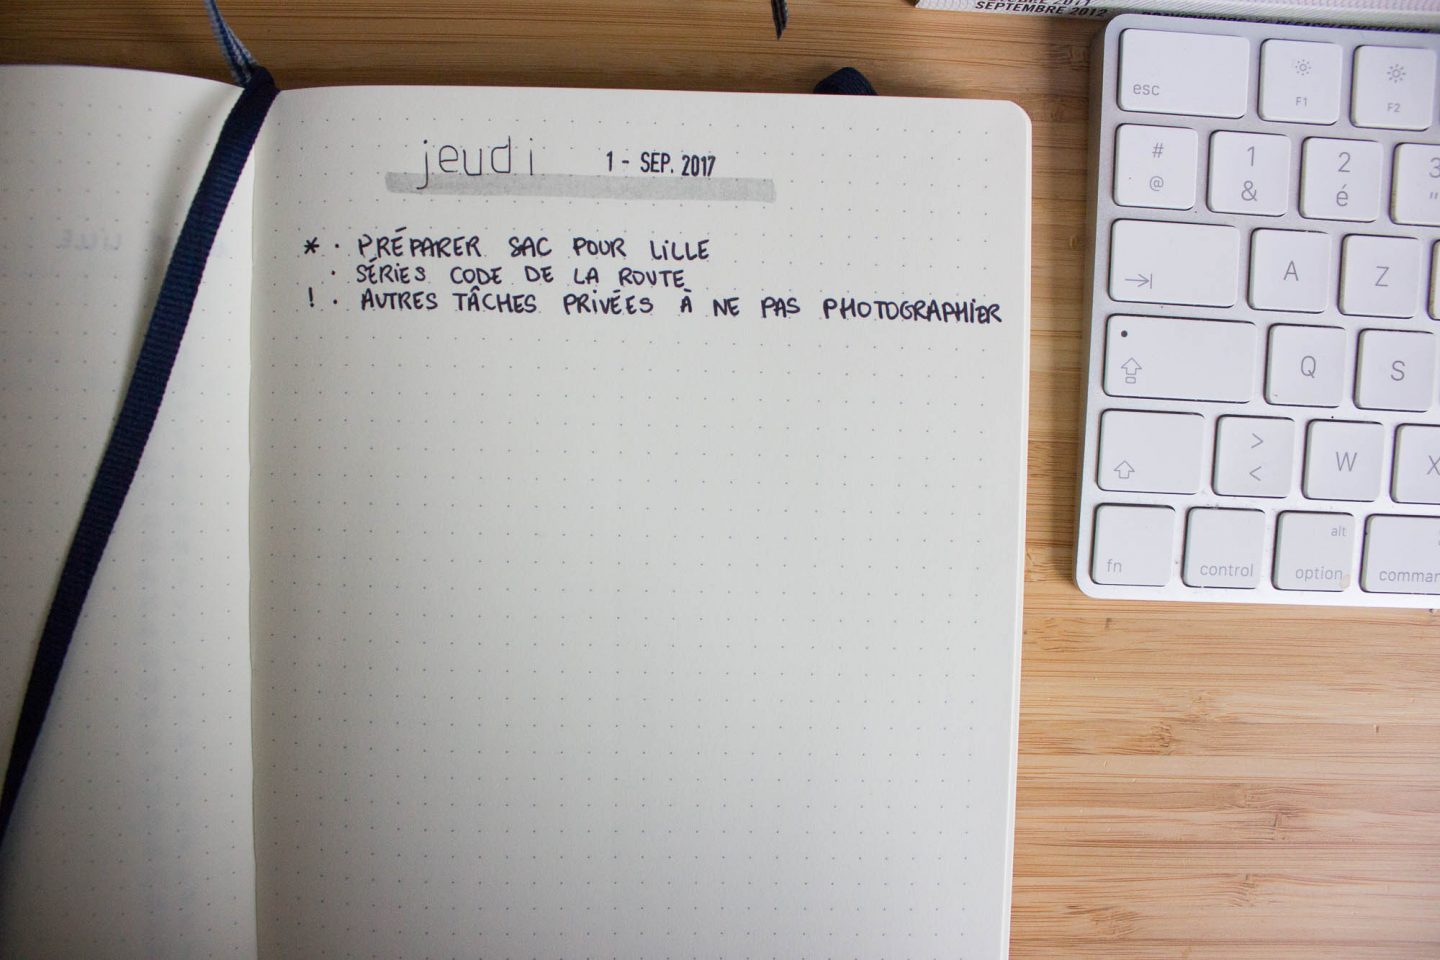 SEPTEMBRE 2012
jeudi 1 - SEP. 2017
* · PRÉPARER SAC POUR LILLE
· SÉRIES CODE DE LA ROUTE
! · AUTRES TÂCHES PRIVÉES À NE PAS PHOTOGRAPHIER
esc F1 F2
# @ 1 & 2 é 3 "
A Z
Q S
> < W X
fn control alt option